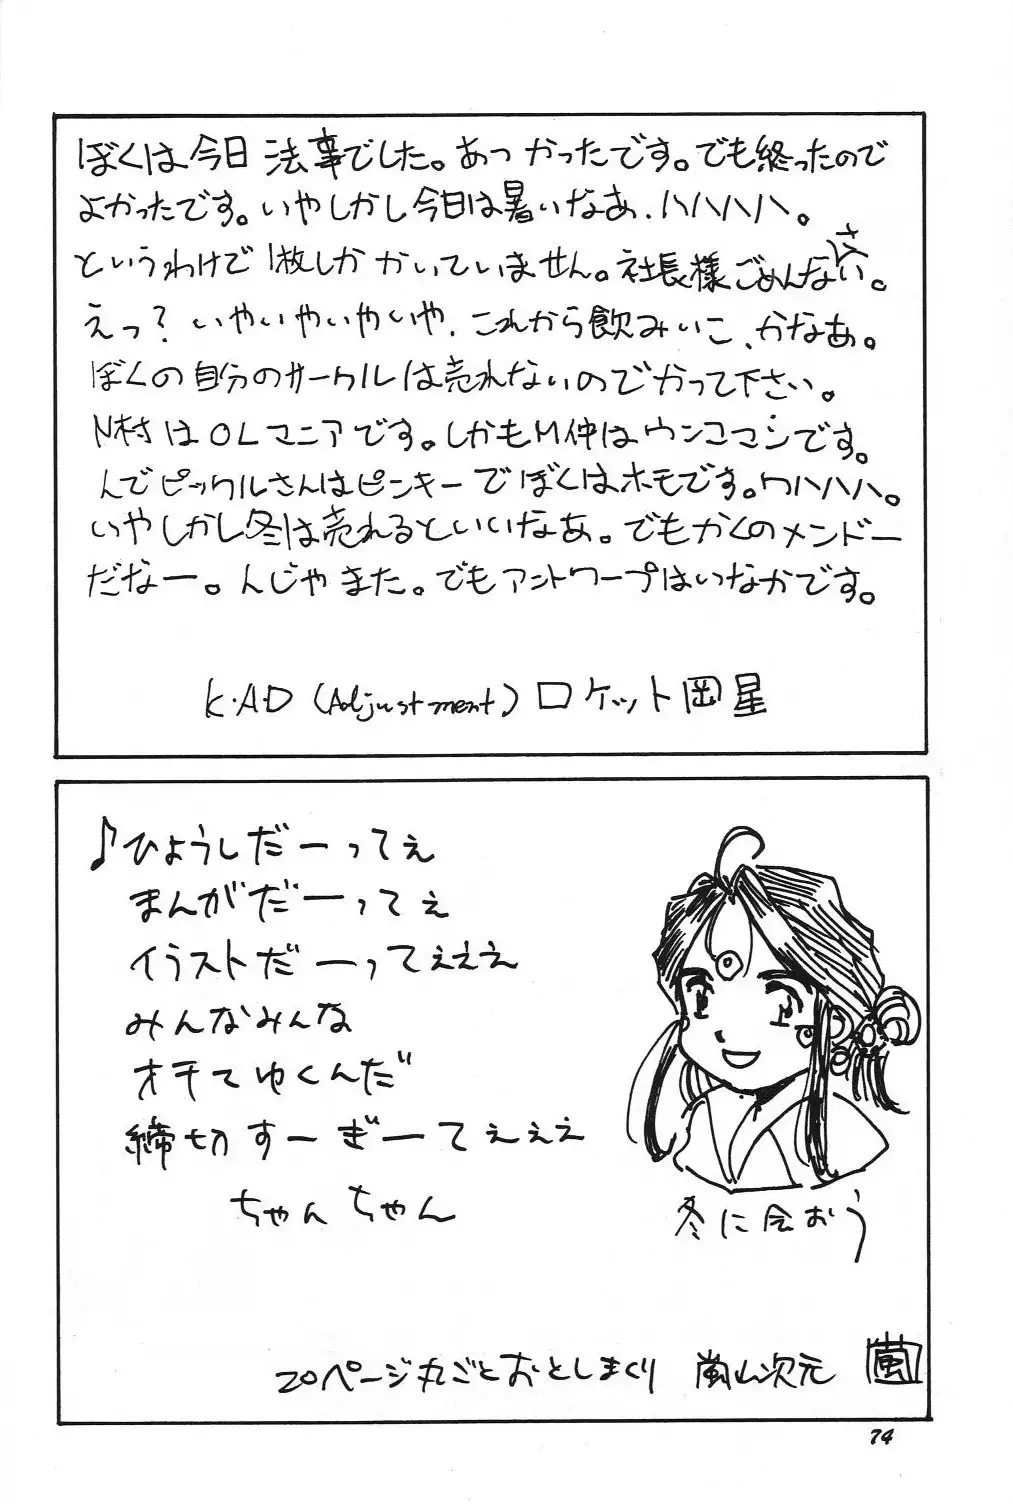 ぼくは今日 法事でした。あつかったです。でも終ったので
よかったです。いやしかし今日は暑いなあ、ハハハハ。
というわけで1枚しかかいていません。社長様ごめんなさい。
えっ？いやいやいやいや、これから飲みいこ、かなあ。
ぼくの自分のサークルは売れないのでかって下さい。
N村はOLマニアです。しかもM仲はウンコマンです。
んでピックルさんはピンキーでぼくはホモです。ワハハハ。
いやしかし冬は売れるといいなあ。でもかくのメンドー
だなー。んじゃまた。でもアントワープはいなかです。
K・A・D (Adjustment) ロケット岡星
♪ひょうしだーってぇ
まんがだーってぇ
イラストだーってぇぇぇ
みんなみんな
オチてゆくんだ
締切すーぎーてぇぇぇ
ちゃんちゃん
冬に会おう
20ページ丸ごとおとしまくり 嵐山次元 嵐
74